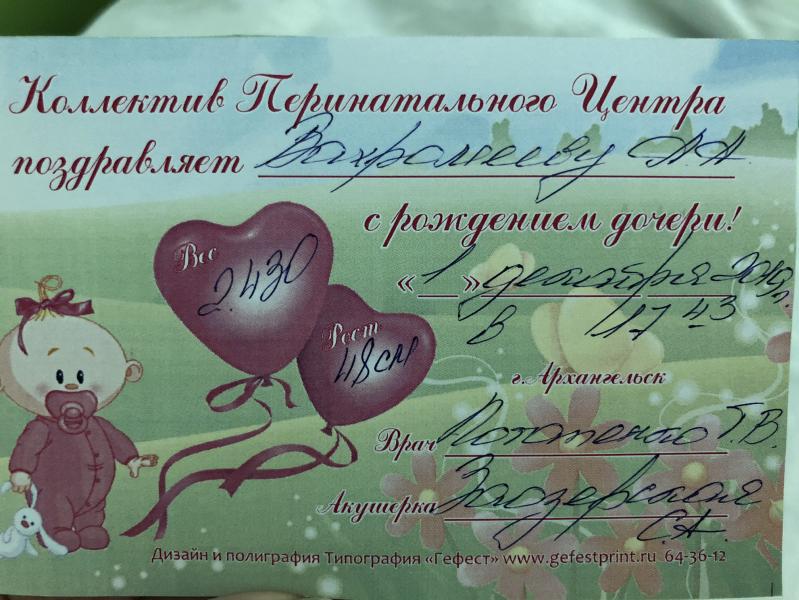 Коллектив Перинатального Центра
поздравляет Вахрамееву А.А.
с рождением дочери!
Вес
2.430
« 1 » декабря
в 17 43
Рост
48 см
г. Архангельск
Врач Т.В.
Акушерка Заозерская
С.А.
Дизайн и полиграфия Типография «Гефест» www.gefestprint.ru 64-36-12